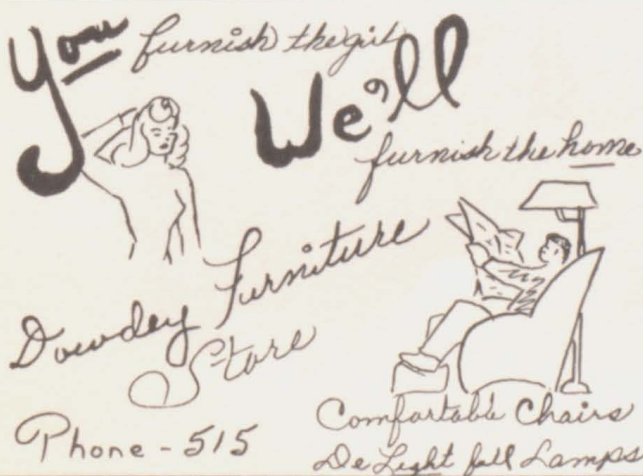 You furnish the girl
We'll
furnish the home
Dowdey Furniture
Store
Phone - 515
Comfortable Chairs
De Light full Lamps